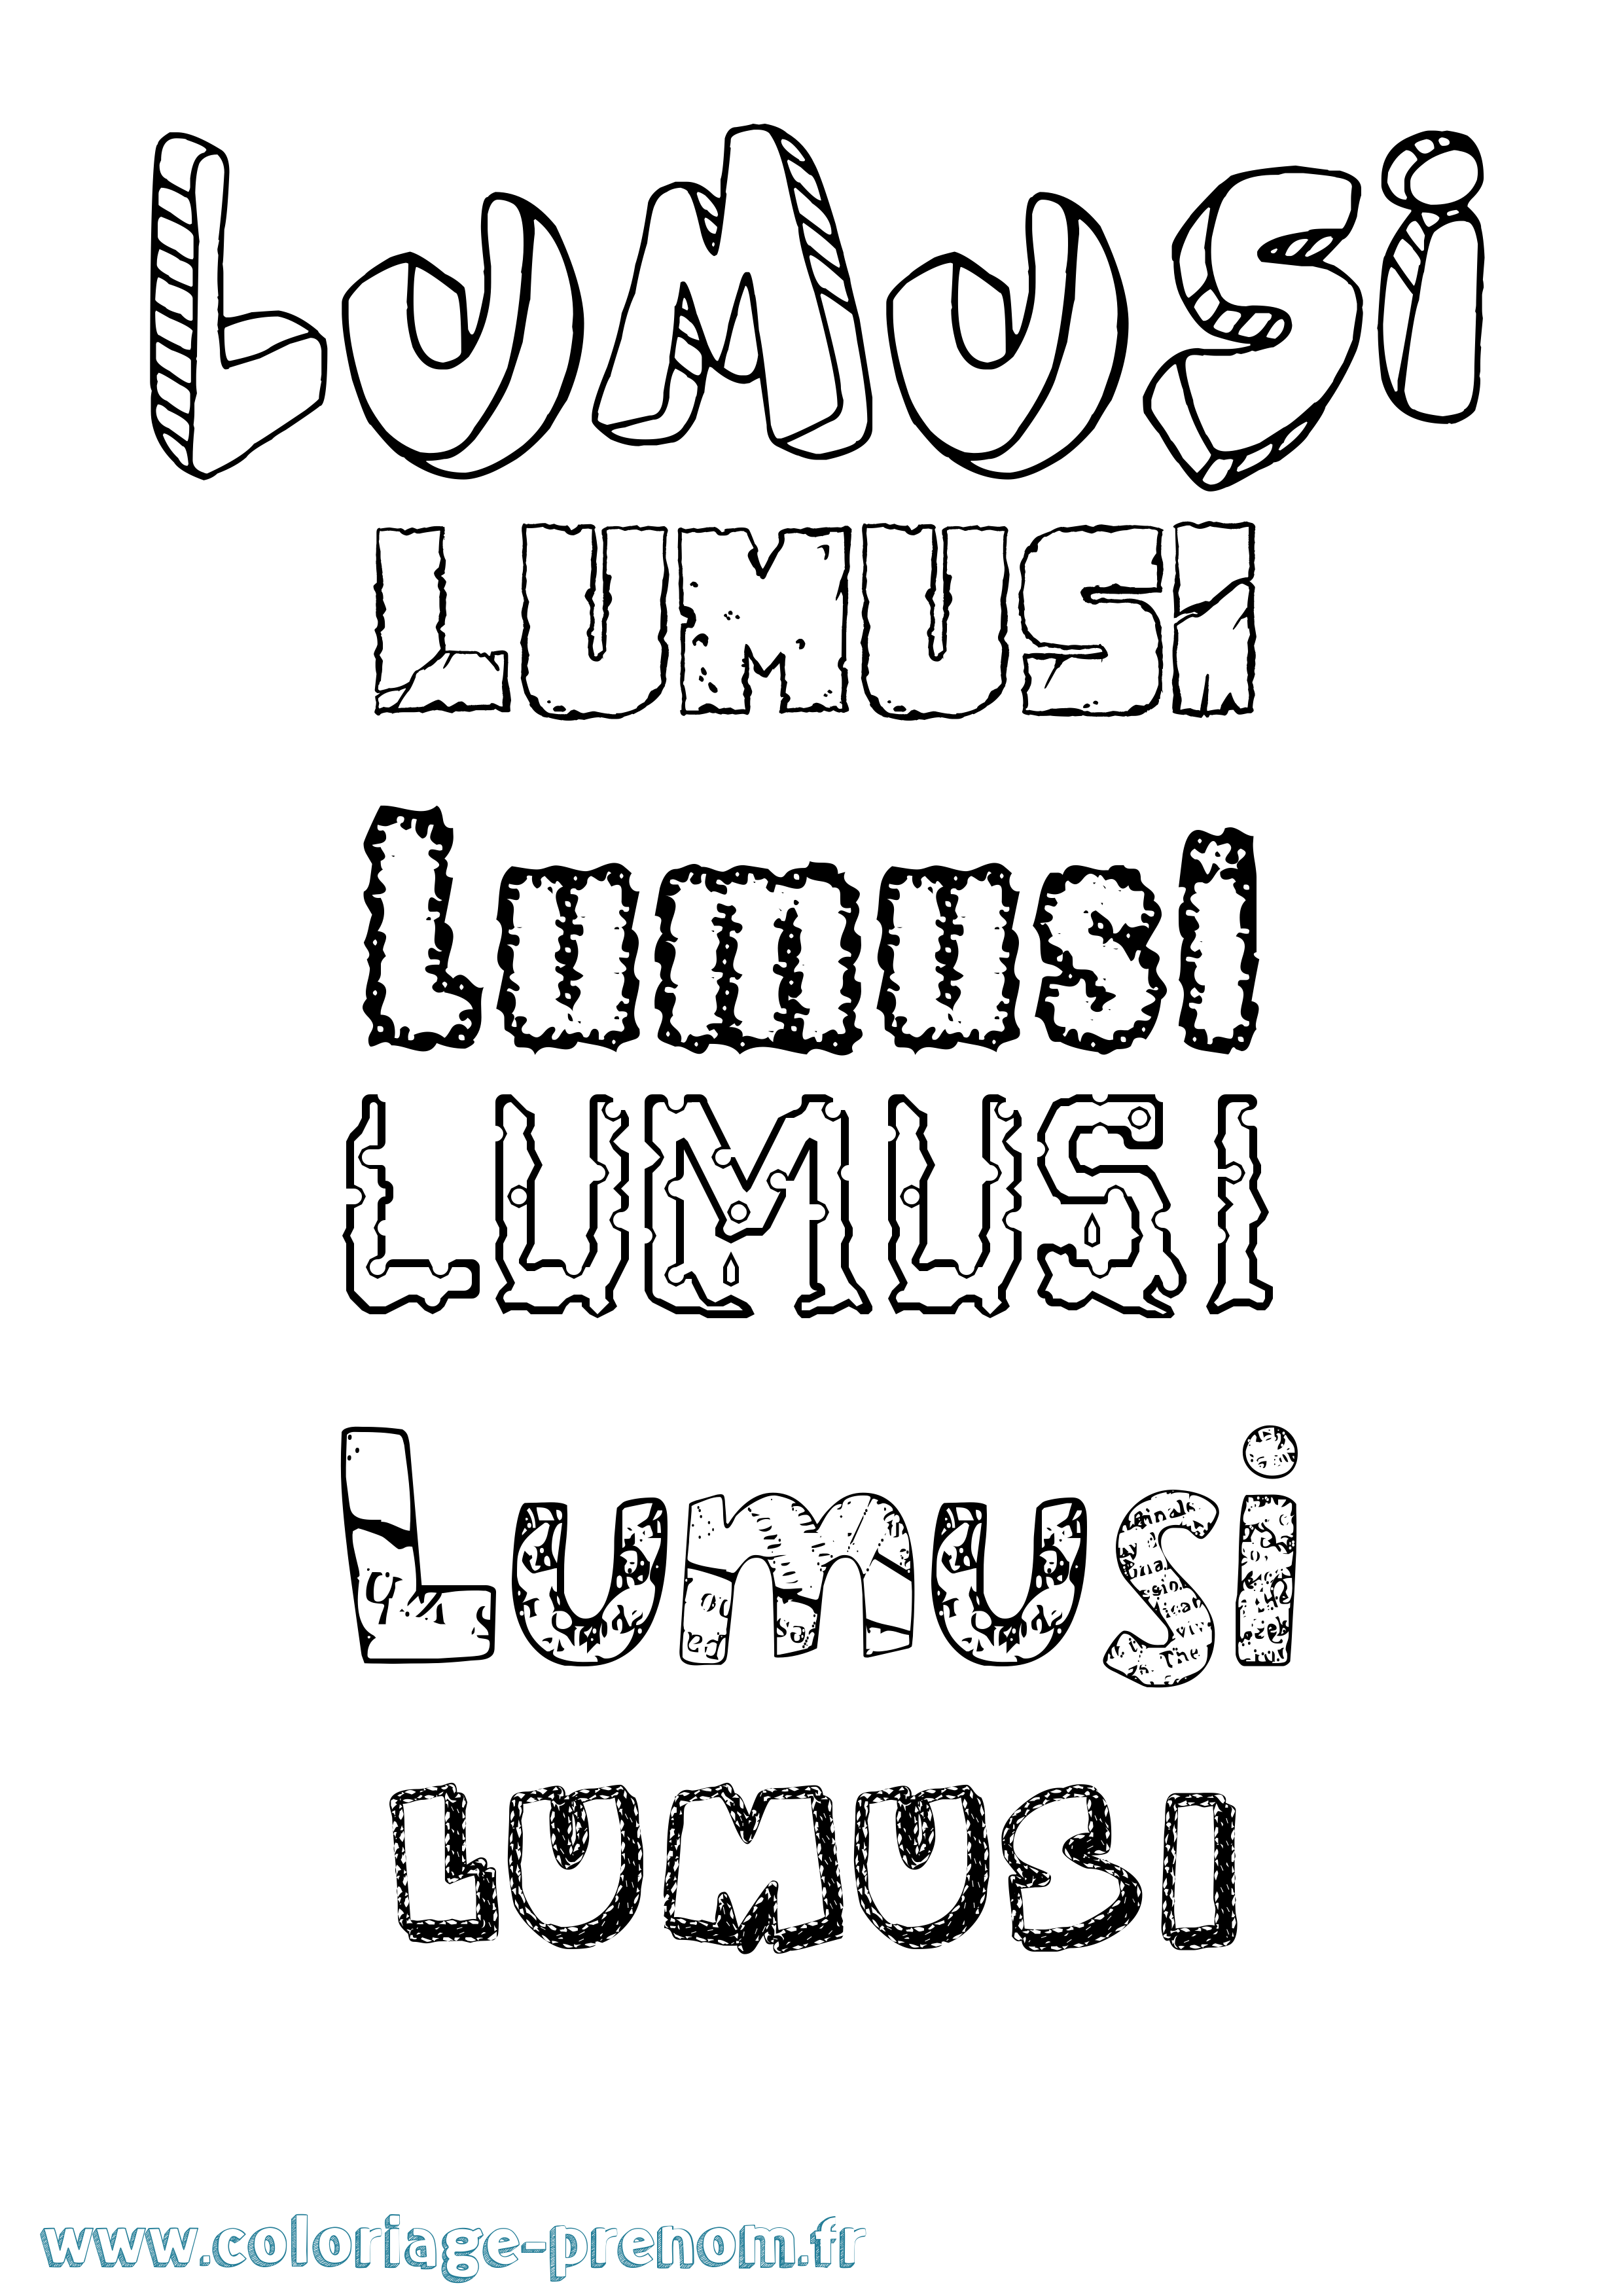 Lumusi
LUMUSI
Lumusi
LUMUSI
Lumusi
LUMUSI
www.coloriage-prenom.fr